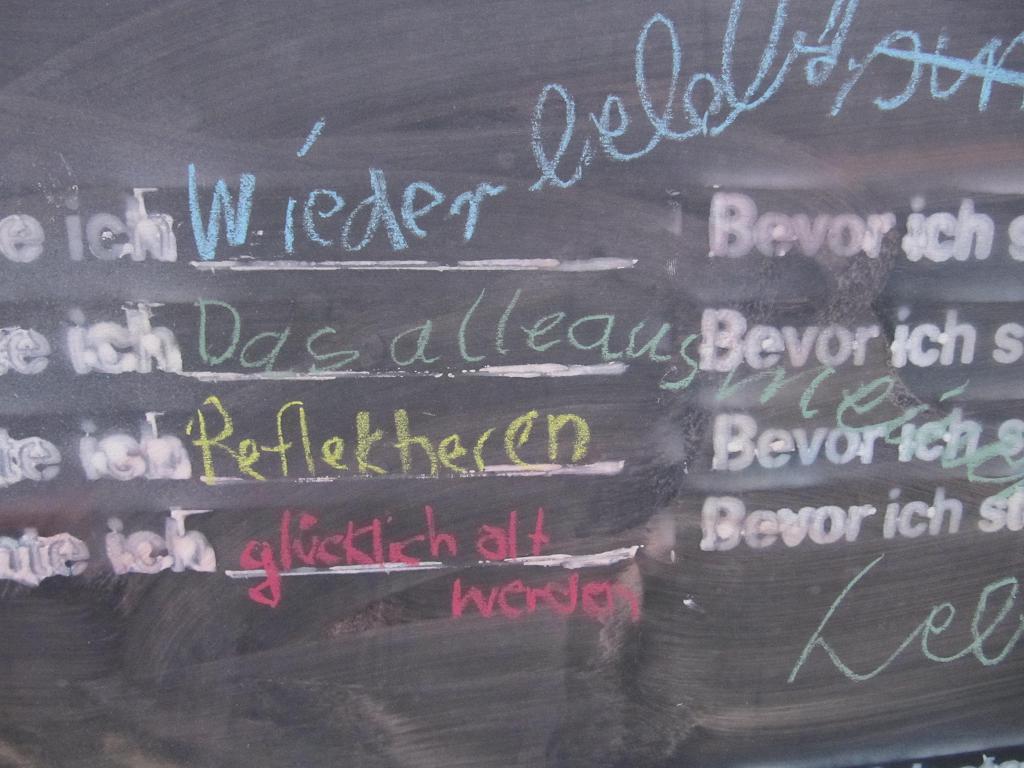 e ich Wieder belebt Bevor ich s
te ich Das alleaus Bevor ich s
te ich Reflektheren Bevor ich s
nte ich glücklich alt Bevor ich st
werden
Leb